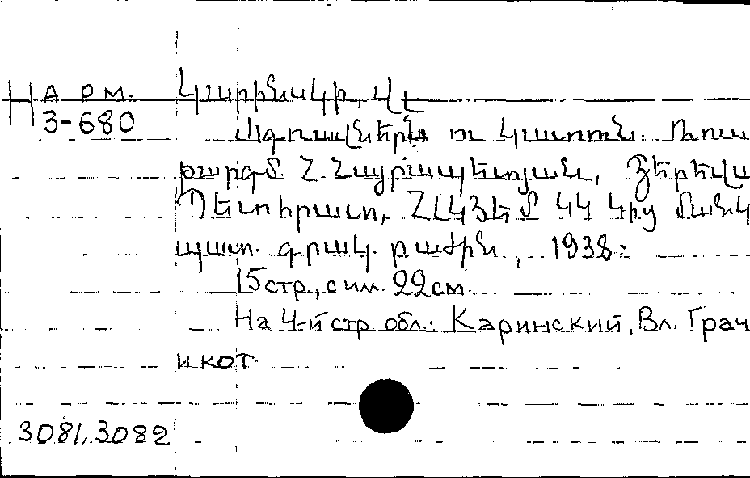 Арм. Կարինսկի, Վլ
3-680
Ագռավները ու կատուն. Ռուս
թարգմ Հ. Հայրապետյան, Յերեվա
Պետհրատ, ՀԼԿՅԵՄ ԿԿ կից մանկ
պատ. գրակ. բաժին, 1938:
15стр., с ил. 22см
На 4-й стр обл: Каринский, Вл. Грач
и кот
3081, 3082